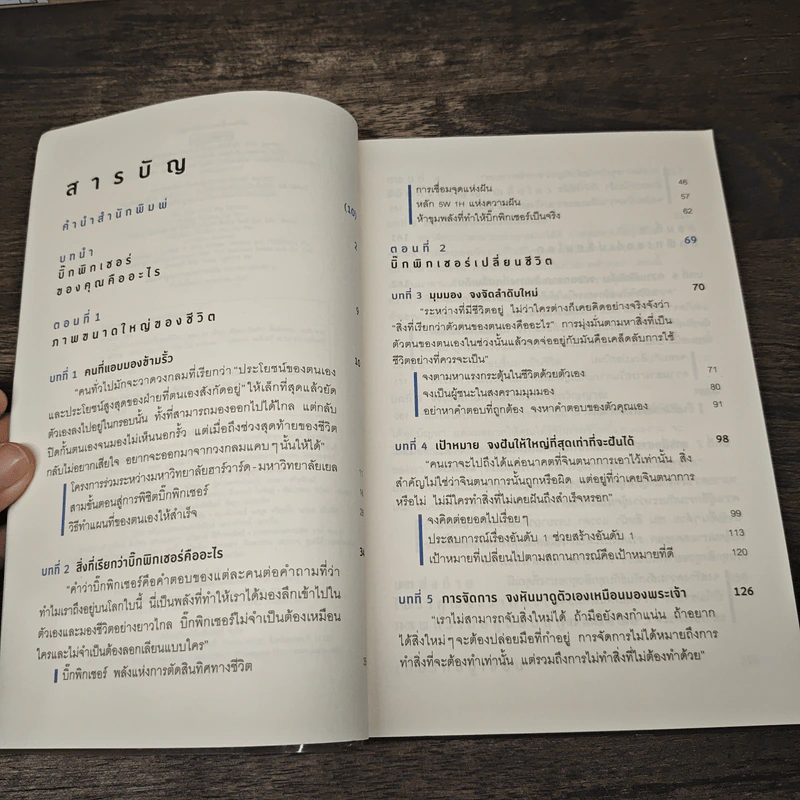 สารบัญ
คำนำสำนักพิมพ์ (10)
บทนำ 2
บิ๊กพิกเชอร์
ของคุณคืออะไร
ตอนที่ 1 9
ภาพขนาดใหญ่ของชีวิต
บทที่ 1 คนที่แอบมองข้ามรั้ว 10
"คนทั่วไปมักจะวาดวงกลมที่เรียกว่า "ประโยชน์ของตนเอง
และประโยชน์สูงสุดของฝ่ายที่ตนเองสังกัดอยู่" ให้เล็กที่สุดแล้วยัด
ตัวเองลงไปอยู่ในกรอบนั้น ทั้งที่สามารถมองออกไปได้ไกล แต่กลับ
ปิดกั้นตนเองจนมองไม่เห็นนอกรั้ว แต่เมื่อถึงช่วงสุดท้ายของชีวิต
กลับไม่อยากเสียใจ อยากจะออกมาจากวงกลมแคบๆ นั้นให้ได้"
โครงการร่วมระหว่างมหาวิทยาลัยฮาร์วาร์ด - มหาวิทยาลัยเยล
สามขั้นตอนสู่การพิชิตบิ๊กพิกเชอร์
วิธีทำแผนที่ของตนเองให้สำเร็จ
บทที่ 2 สิ่งที่เรียกว่าบิ๊กพิกเชอร์คืออะไร 34
"คำว่าบิ๊กพิกเชอร์คือคำตอบของแต่ละคนต่อคำถามที่ว่า
ทำไมเราถึงอยู่บนโลกใบนี้ นี่เป็นพลังที่ทำให้เราได้มองลึกเข้าไปใน
ตัวเองและมองชีวิตอย่างยาวไกล บิ๊กพิกเชอร์ไม่จำเป็นต้องเหมือน
ใครและไม่จำเป็นต้องลอกเลียนแบบใคร"
บิ๊กพิกเชอร์ พลังแห่งการตัดสินทิศทางชีวิต
การเชื่อมจุดแห่งฝัน 46
หลัก 5W 1H แห่งความฝัน 57
ห้าขุมพลังที่ทำให้บิ๊กพิกเชอร์เป็นจริง 62
ตอนที่ 2 69
บิ๊กพิกเชอร์เปลี่ยนชีวิต
บทที่ 3 มุมมอง จงจัดลำดับใหม่ 70
"ระหว่างที่มีชีวิตอยู่ ไม่ว่าใครต่างก็เคยคิดอย่างจริงจังว่า
"สิ่งที่เรียกว่าตัวตนของตนเองคืออะไร" การมุ่งมั่นตามหาสิ่งที่เป็น
ตัวตนของตนเองในช่วงนั้นแล้วจดจ่ออยู่กับมันคือเคล็ดลับการใช้
ชีวิตอย่างที่ควรจะเป็น"
จงตามหาแรงกระตุ้นในชีวิตด้วยตัวเอง 71
จงเป็นผู้ชนะในสงครามมุมมอง 80
อย่าหาคำตอบที่ถูกต้อง จงหาคำตอบของตัวคุณเอง 91
บทที่ 4 เป้าหมาย จงฝันให้ใหญ่ที่สุดเท่าที่จะฝันได้ 98
"คนเราจะไปถึงได้แค่อนาคตที่จินตนาการเอาไว้เท่านั้น สิ่ง
สำคัญไม่ใช่ว่าจินตนาการนั้นถูกหรือผิด แต่อยู่ที่ว่าเคยจินตนาการ
หรือไม่ ไม่มีใครทำสิ่งที่ไม่เคยฝันถึงสำเร็จหรอก"
จงคิดต่อยอดไปเรื่อยๆ 99
ประสบการณ์เรื่องอันดับ 1 ช่วยสร้างอันดับ 1 113
เป้าหมายที่เปลี่ยนไปตามสถานการณ์คือเป้าหมายที่ดี 120
บทที่ 5 การจัดการ จงหันมาดูตัวเองเหมือนมองพระเจ้า 126
"เราไม่สามารถจับสิ่งใหม่ได้ ถ้ามือยังคงกำแน่น ถ้าอยาก
ได้สิ่งใหม่ๆ จะต้องปล่อยมือที่กำอยู่ การจัดการไม่ได้หมายถึงการ
ทำสิ่งที่จะต้องทำเท่านั้น แต่รวมถึงการไม่ทำสิ่งที่ไม่ต้องทำด้วย"